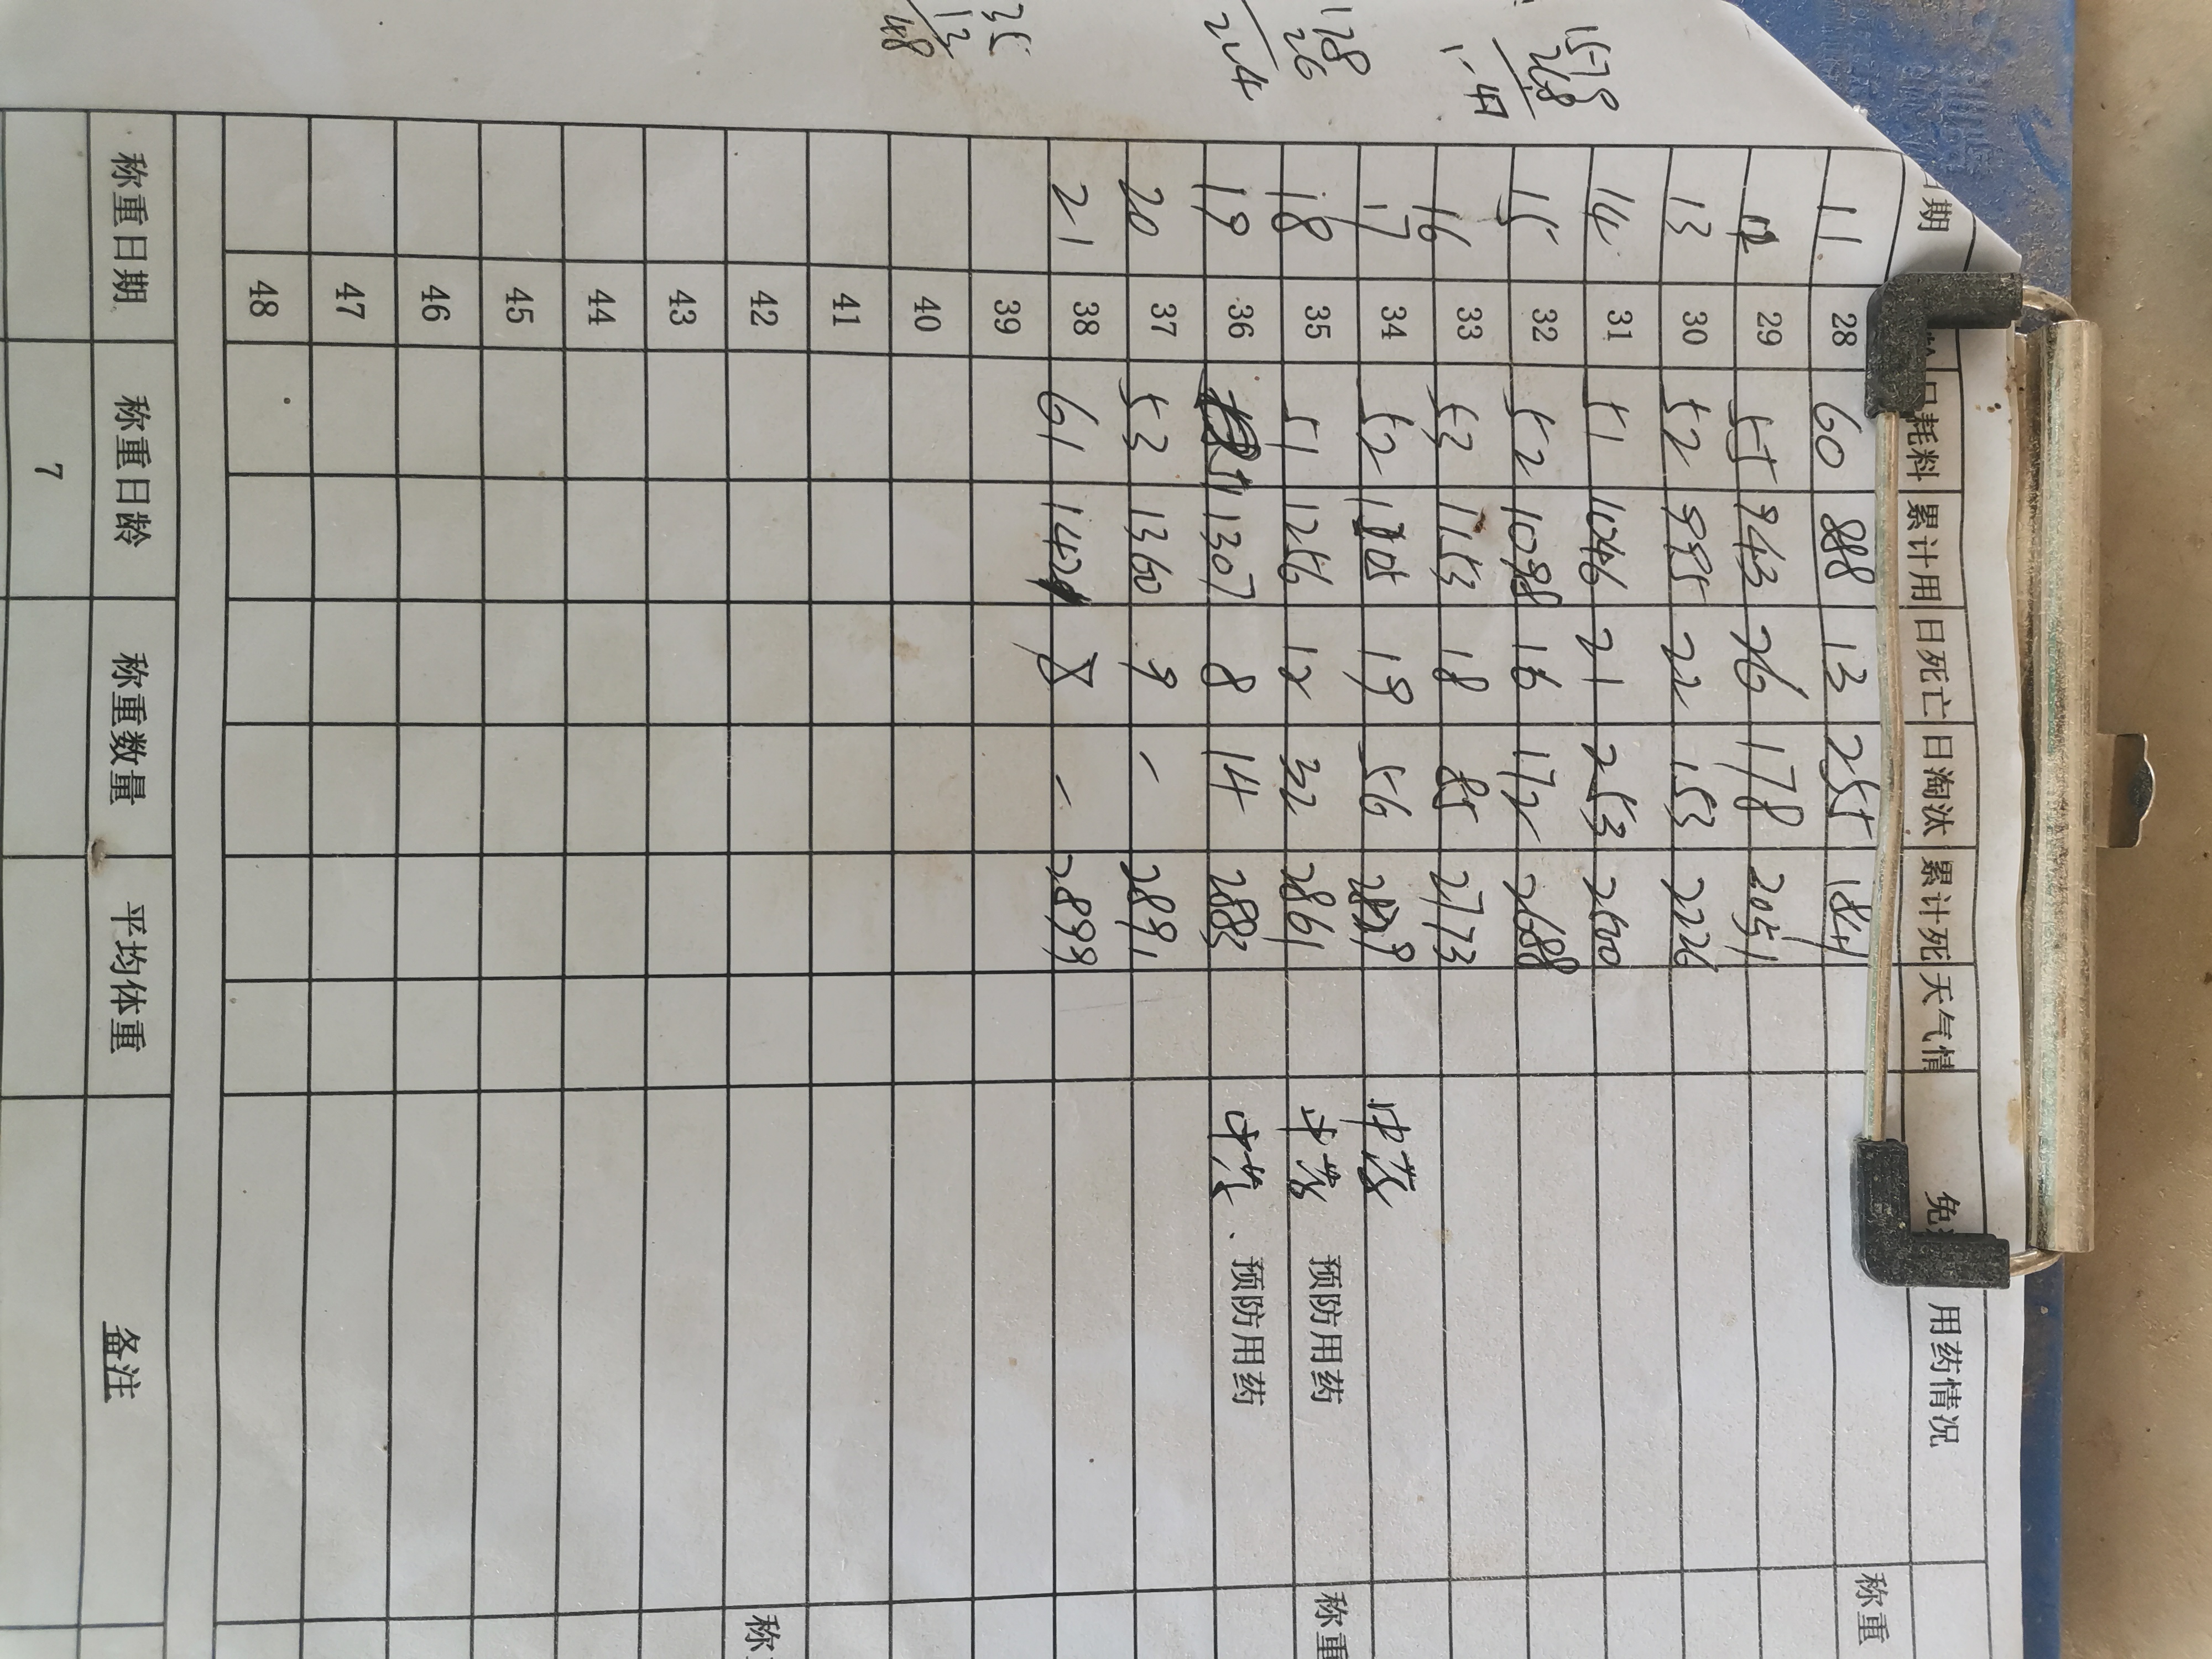 1578
268
1.41
128
26
224
35
13
48
日期 龄 日耗料 累计用 日死亡 日淘汰 累计死 天气情 免 用药情况
11 28 60 888 13 255 1841 称重
12 29 55 943 26 178 2051
13 30 52 995 22 153 2226
14 31 51 1046 21 253 2500
15 32 52 1098 16 172 2688
16 33 53 1153 18 85 2773
17 34 52 1205 19 56 中药
18 35 51 1256 12 32 2861 中药 预防用药 称重
19 36 51 1307 8 14 2883 中药、预防用药
20 37 53 1360 9 - 2891
21 38 61 1421 8 - 2899
39
40
41
42 称
43
44
45
46
47
48
称重日期 称重日龄 称重数量 平均体重 备注
7